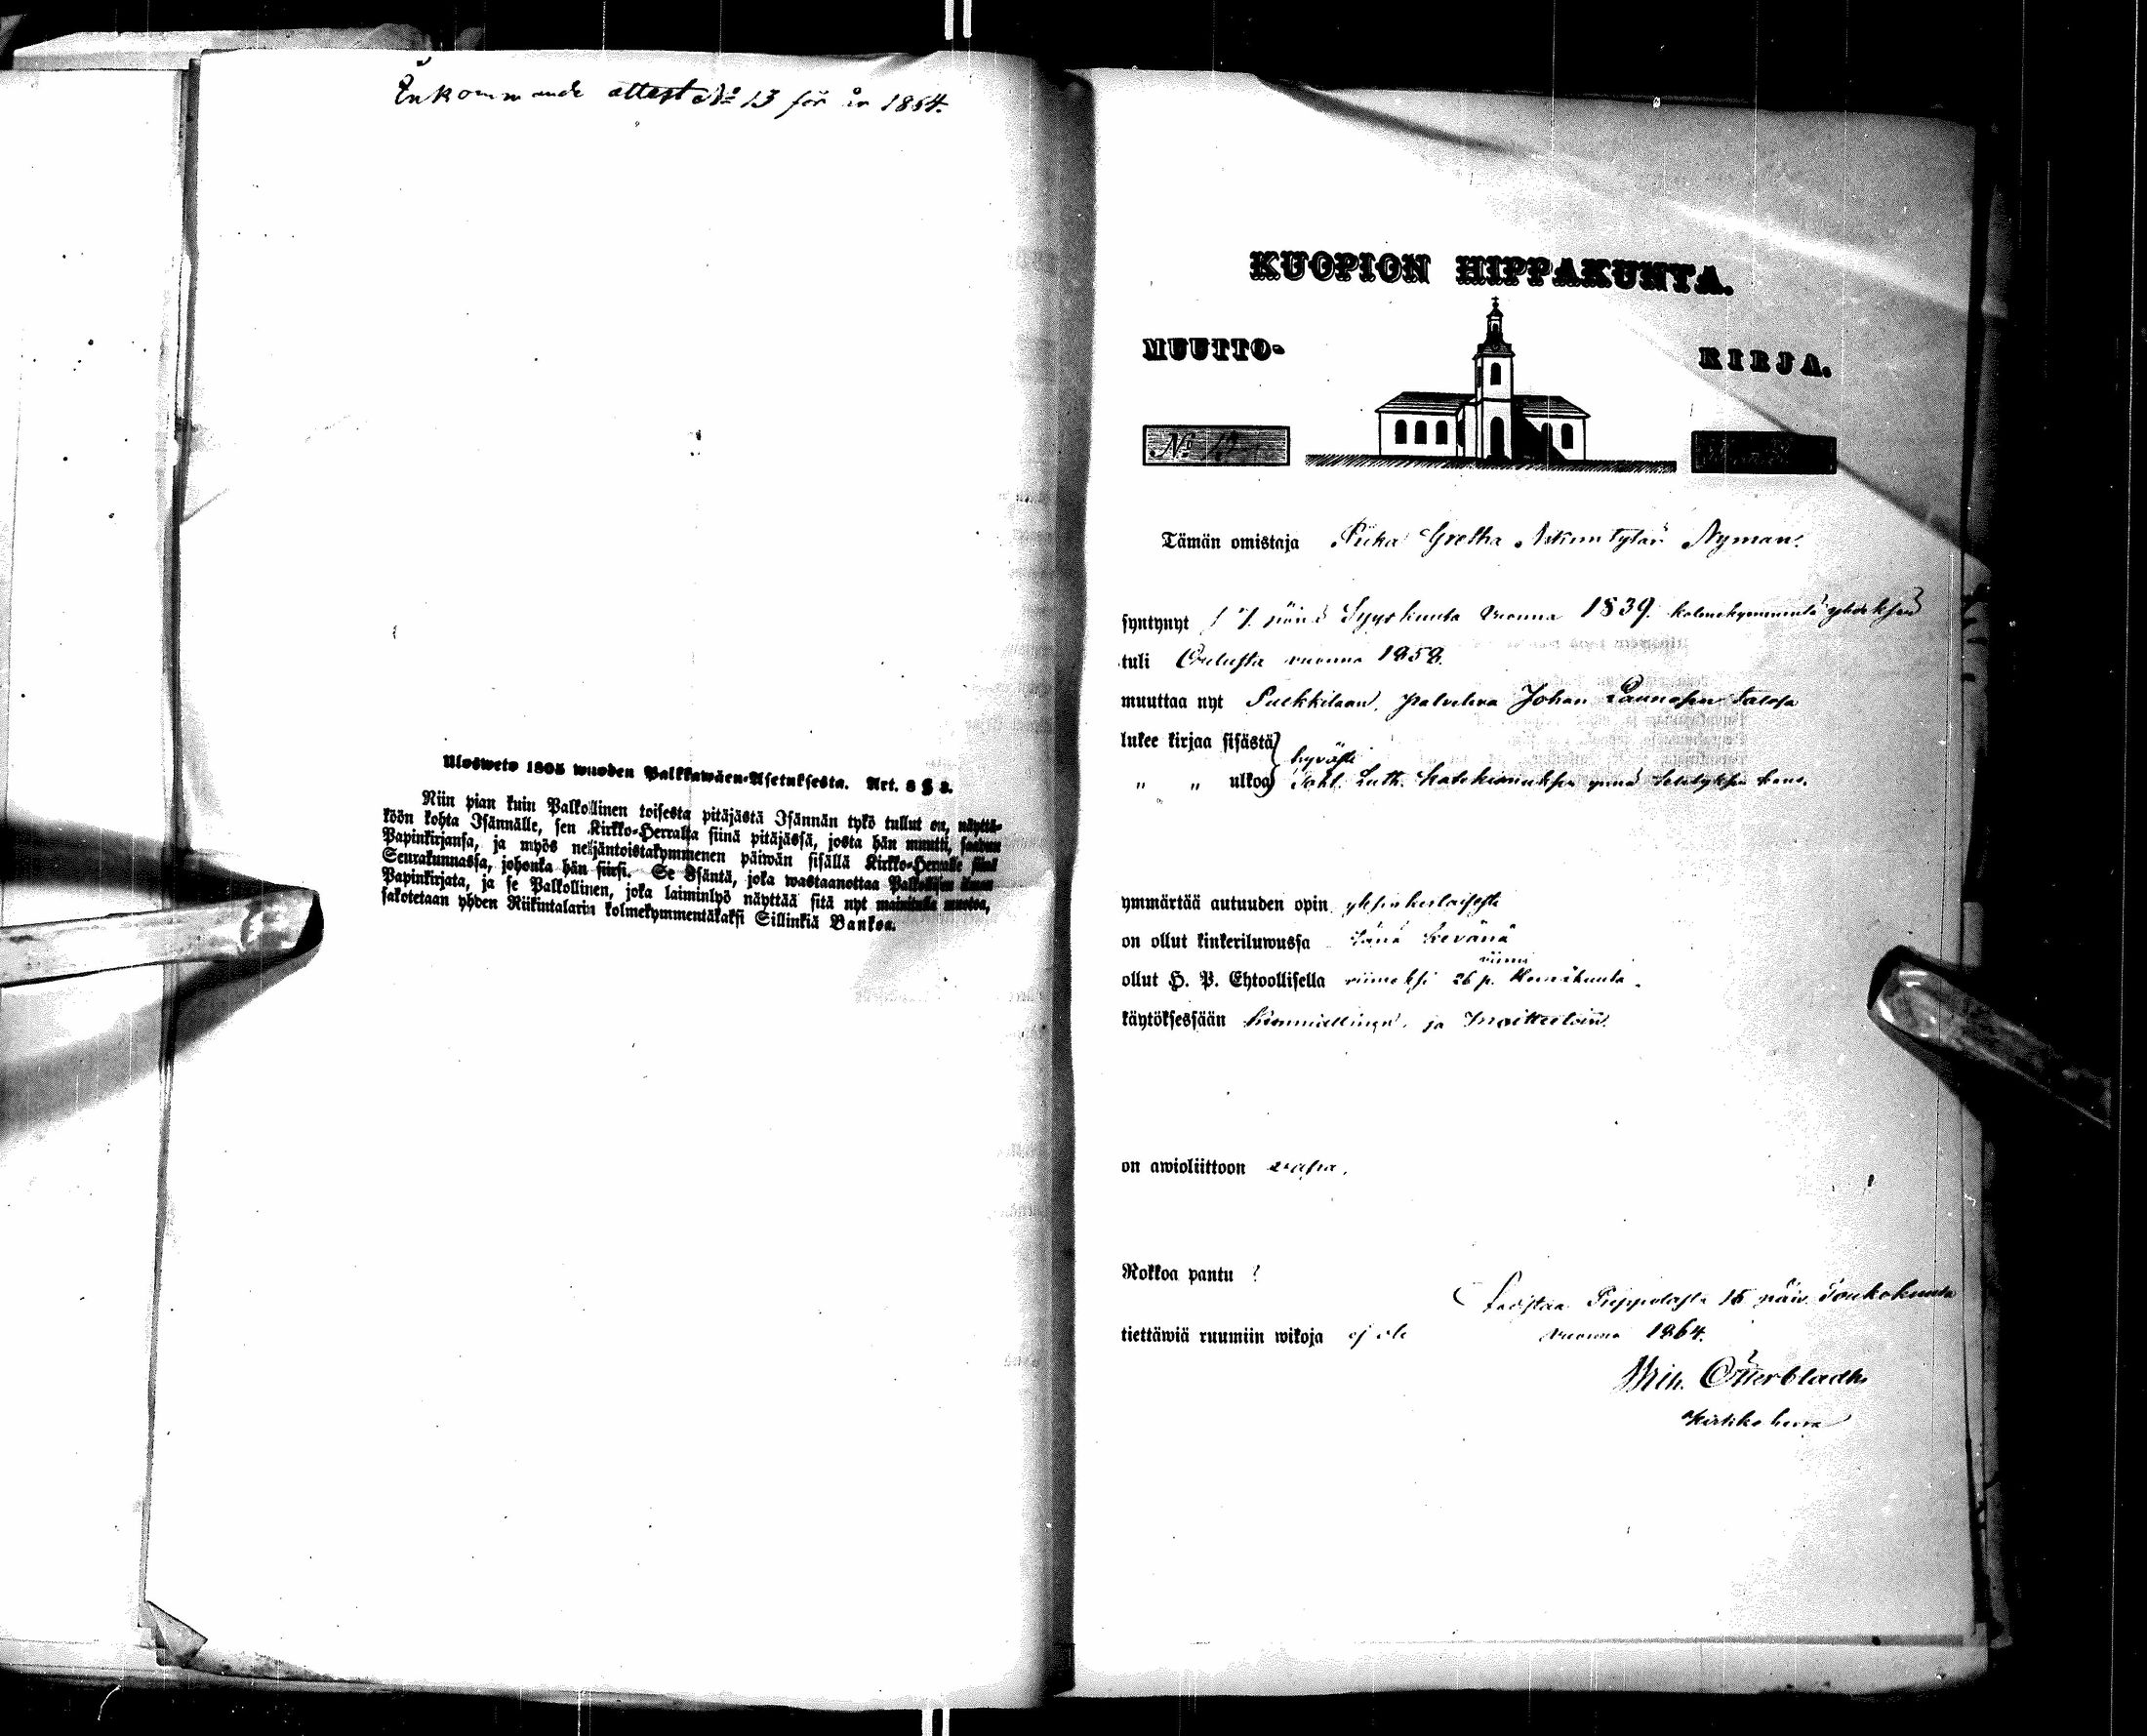 Inkommande attest No 13 för år 1864.
Ulosweto 1805 wuoden Palkkawäen-Asetuksesta. Art. 8 § 3.
Niin pian kuin Palkollinen toisesta pitäjästä Isännän tykö tullut on, näyttä-
köön kohta Isännälle, sen Kirkko-Herralta siinä pitäjässä, josta hän muutti, saadun
Papinkirjansa, ja myös neljäntoistakymmenen päiwän sisällä Kirkko-Herralle siinä
Seurakunnassa, johonka hän siirsi. Se Isäntä, joka wastaanottaa Palkollisen ilman
Papinkirjata, ja se Palkollinen, joka laiminlyö näyttää sitä nyt mainitulla muotoa,
sakotetaan yhden Riikintalarin kolmekymmentäkaksi Sillinkiä Bankoa.
KUOPION HIPPAKUNTA.
MUUTTO- KIRJA.
No
Tämän omistaja Gretha Nyman.
syntynyt Syyskuuta vuonna 1839. kolmekymmentä yhdeksän
tuli Oulusta vuonna 1858.
muuttaa nyt Pulkkilaan, palvelcva Johan talossa
lukee kirjaa sisästä hyvästi
" " ulkoa Luth. Katekismuksen ynnä selityksen
ymmärtää autuuden opin yksinkertaisesti
on ollut kinkeriluwussa tänä kevänä
ollut H. P. Ehtoollisella viimeksi 26 p. viime
käytöksessään kunniallinen, ja moitteetoin.
on awioliittoon vapa.
Rokkoa pantu ?
Piippolasta 15 päiv. Toukokuuta
tiettäwiä ruumiin wikoja ej ole vuonna 1864.
Österbladh
Kirkkoherra